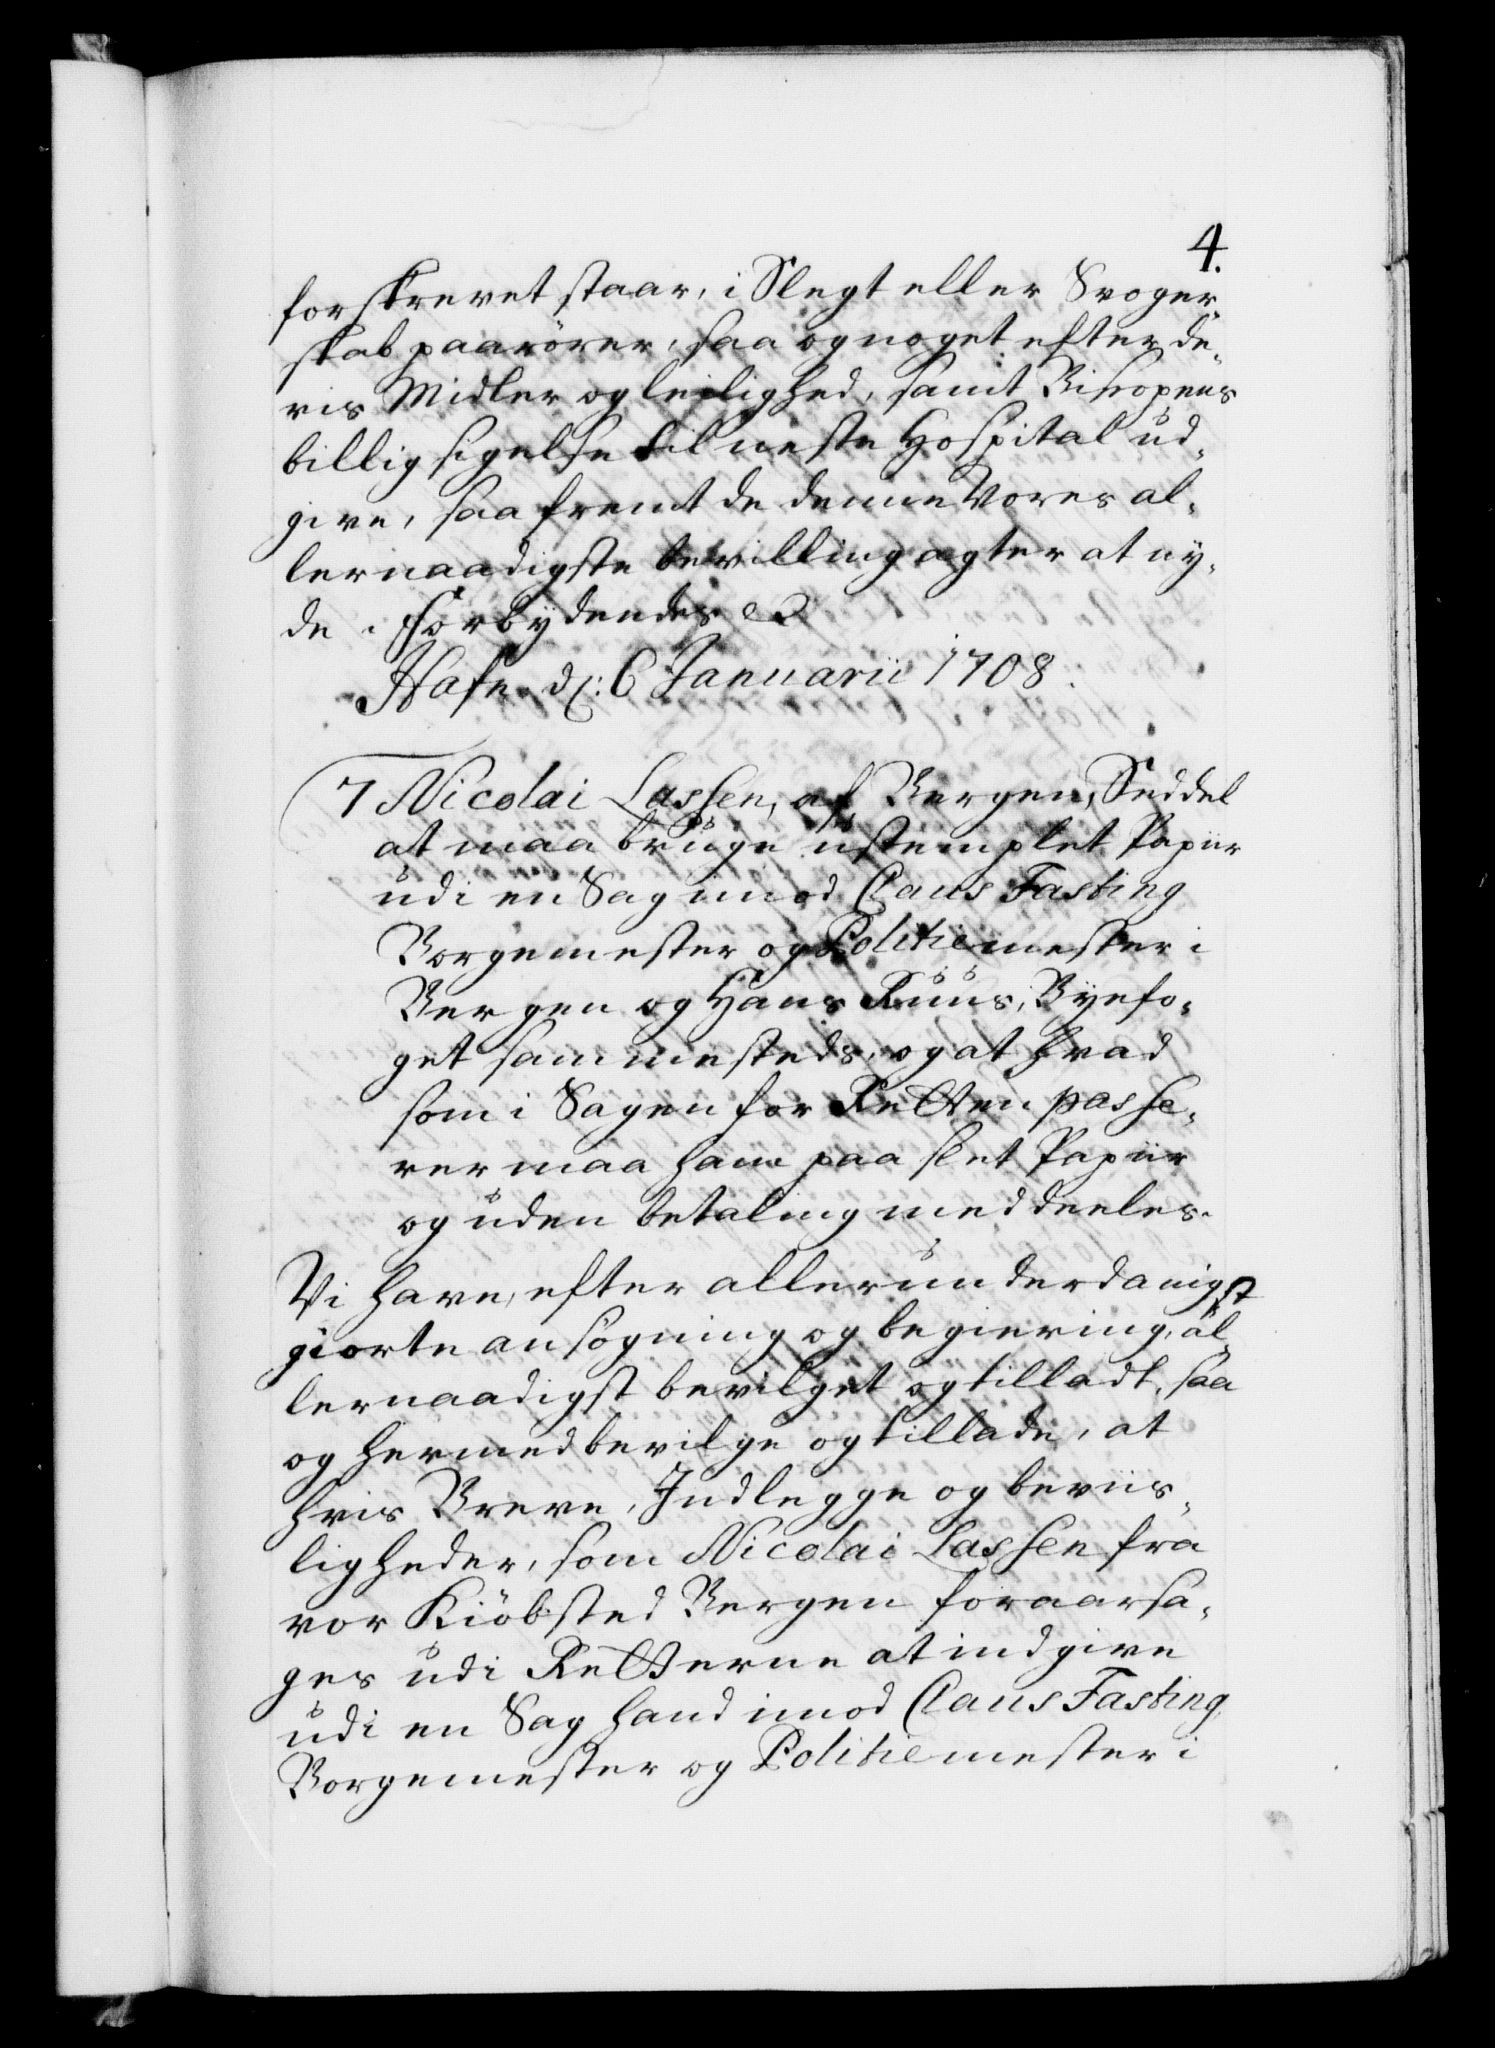 4.
forskrevet staar, i Slegt eller Svoger
skab paarörer, saa og noget efter de,
ris Midler og leilighed, samt Bispens
billig sigelse til neste Hospital ud,
give, saafremt de denne Vores al,
lernaadigste bevilling agter at ny,
de. Forbydendes &
Hafn. d: 6 Januarii 1708.
7 Nicolai Lassen, af Bergen, Seddel
at maa bruge ustemplet Papiir
udi en Sag imod Claus Fasting
Borgemester og Politiemester i
Bergen og Hans Ruus, Byefo,
get sammesteds, og at hvad
som i Sagen for Retten passe,
rer maa ham paa slet Papiir
og uden betaling meddeeles.
Vi have, efter allerunderdanigst
giorte ansøgning og begiering, al,
lernaadigst bevilget og tilladt, saa
og hermed bevilge og tillade, at
hvis Breve, Indlegge og beviis,
ligheder, som Nicolai Lassen fra
vor Kiöbsted Bergen foraarsa,
ges udi Retterne at indgive
udi en Sag hand imod Claus Fasting
Borgemester og Politiemester i